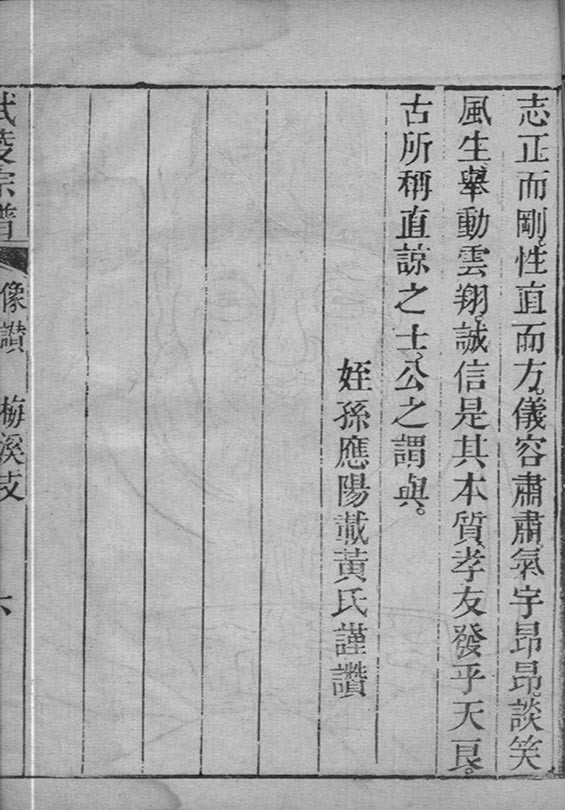 志正而剛。性直而方。儀容肅肅、氣宇昂昂。談笑
風生、舉動雲翔。誠信是其本質、孝友發乎天良。
古所稱直諒之士、公之謂與。
姪孫應陽戴黃氏謹讚
武陵宗譜
像讚 梅溪支 六